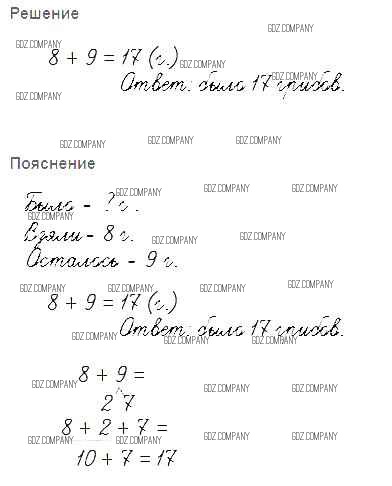 Решение
GDZ.COMPANY
GDZ.COMPANY
8 + 9 = 17 (г.)
GDZ.COMPANY
GDZ.COMPANY
Ответ: было 17 грибов.
GDZ.COMPANY
GDZ.COMPANY GDZ.COMPANY GDZ.COMPANY
Пояснение
GDZ.COMPANY GDZ.COMPANY GDZ.COMPANY
Было - ? г.
GDZ.COMPANY
Взяли - 8 г.
GDZ.COMPANY GDZ.COMPANY
Осталось - 9 г.
GDZ.COMPANY GDZ.COMPANY GDZ.COMPANY GDZ.COMPANY
8 + 9 = 17 (г.)
Ответ: было 17 грибов.
GDZ.COMPANY GDZ.COMPANY GDZ.COMPANY
8 + 9 =
GDZ.COMPANY GDZ.COMPANY GDZ.COMPANY
2 7
8 + 2 + 7 =
GDZ.COMPANY GDZ.COMPANY GDZ.COMPANY GDZ.COMPANY
10 + 7 = 17